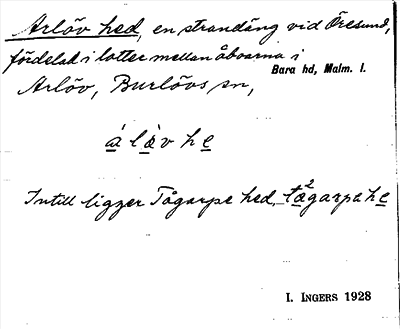 Arlöv hed, en strandäng vid Öresund,
fördelad i lotter mellan åboarna i
Bara hd, Malm. l.
Arlöv, Burlövs sn,
á l ö̀ v h e
Intill ligger Tågarps hed, tå²garpa he
I. INGERS 1928